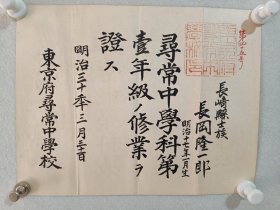 長崎縣士族
長岡隆一郎
明治十七年一月生
尋常中學科第
壹年級ノ修業ヲ
證ス
明治三十年三月三十日
東京府尋常中學校